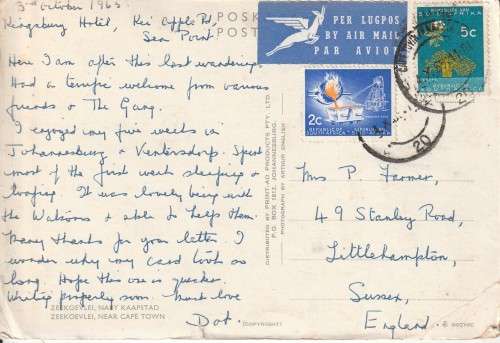 3rd October 1963
Kingsbury Hotel, Kei Apple Rd,
Sea Point
POSK
POSTC
Here I am after this last wandering
Had a terrific welcome from various
friends & The Gang.
I enjoyed my five weeks in
Johannesburg & Ventersdorp. Spent
most of the first week sleeping &
loafing. It was lovely being with
the Watsons & able to help them.
Many thanks for your letter. I
wonder why my card took so
long. Hope this one is quicker.
Writing properly soon. Much love
Dot.
ZEEKOEVLEI, NABY KAAPSTAD
ZEEKOEVLEI, NEAR CAPE TOWN
(COPYRIGHT)
DISTRIBUTED BY PRINT-AD PRODUCTS PTY. LTD.
P.O. BOX 1812, JOHANNESBURG.
PHOTOGRAPH BY ARTHUR ENGLISH
PER LUGPOS
BY AIR MAIL
PAR AVION
5c
2c
REPUBLIC OF SOUTH AFRICA
20
Mrs P. Farmer,
49 Stanley Road,
Littlehampton,
Sussex,
England